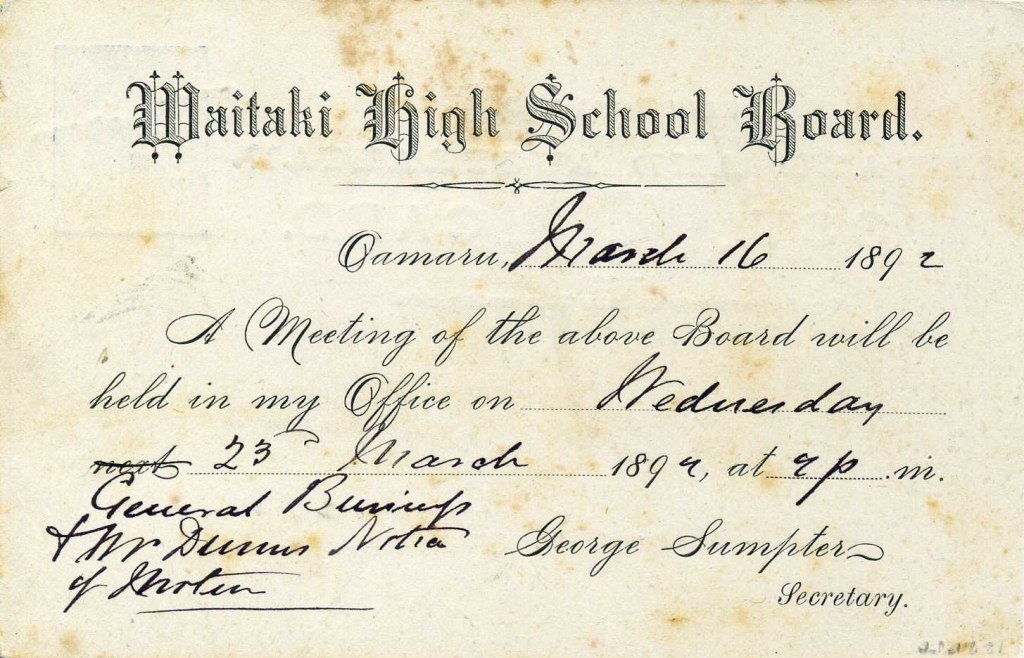 Waitaki High School Board.
Oamaru, March 16 1892
A Meeting of the above Board will be
held in my Office on Wednesday
next 23 March 1892, at 2 p.m.
General Business
& Mr Notice
of Motion
George Sumpter
Secretary.